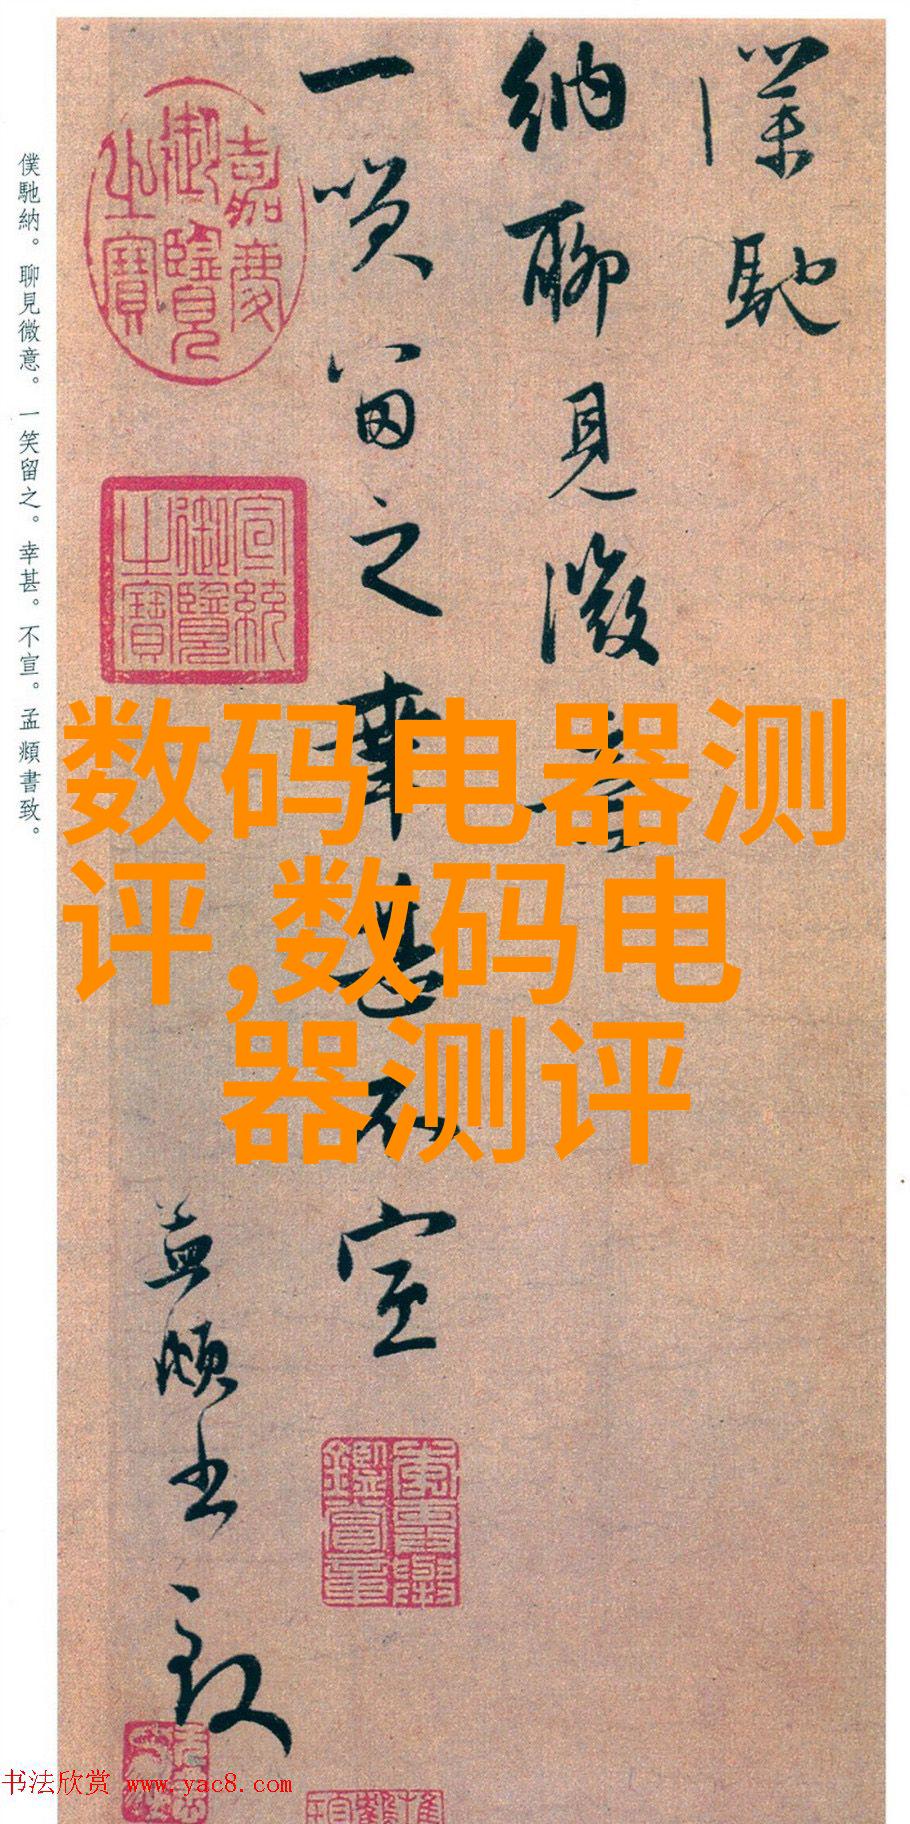 僕馳
納聊見微意
一笑留之幸甚不宣
孟頫書致
嘉慶御覽之寶
宣統御覽之寶
僕馳納。聊見微意。一笑留之。幸甚。不宣。孟頫書致。
数码电器测
评,数码电
器测评
书法欣赏 www.yac8.com